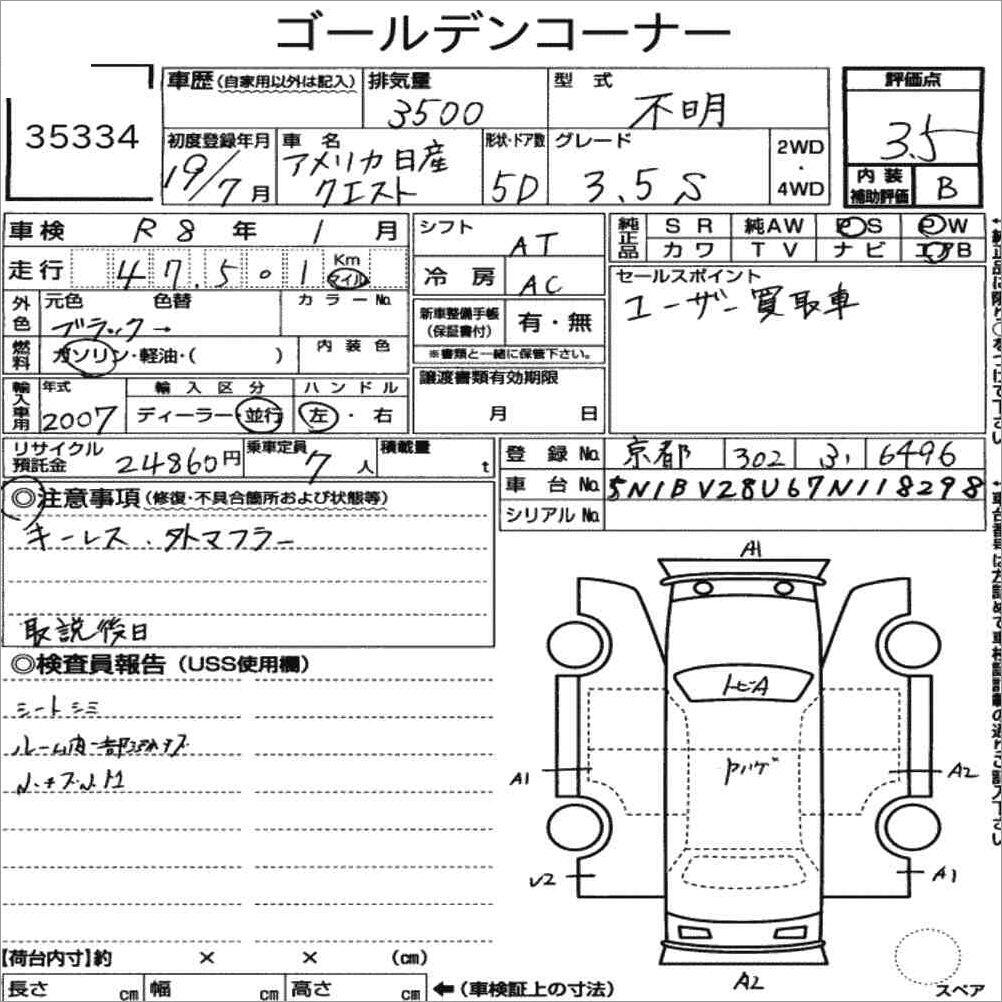 ゴールデンコーナー
35334
車歴(自家用以外は記入) 排気量 3500 型式 不明 評価点 3.5
初度登録年月 19/7月 車名 アメリカ日産 クエスト 形状・ドア数 5D グレード 3.5S 2WD・4WD 内装補助評価 B
車検 R8年1月
走行 47,501 Km マイル
外色 元色 色替 カラーNo.
ブラック→
燃料 ガソリン・軽油・( ) 内装色
輸入車用 年式 2007 輸入区分 ディーラー・並行 ハンドル 左・右
シフト AT
冷房 AC
新車整備手帳(保証書付) 有・無
※書類と一緒に保管下さい。
譲渡書類有効期限
月 日
純正品 SR 純AW PS PW
カワ TV ナビ エアB
セールスポイント
ユーザー買取車
リサイクル預託金 24860円 乗車定員 7人 積載量 t
登録No. 京都 302 6496
車台No. 5N1BV28U67N118298
シリアルNo.
◎注意事項(修復・不具合箇所および状態等)
キーレス・外マフラー
取説後日
◎検査員報告(USS使用欄)
シートシミ
A1
トビA
A1
A2
V2
A1
A2
スペア
【荷台内寸】約 × × (cm)
長さ cm 幅 cm 高さ cm ←(車検証上の寸法)